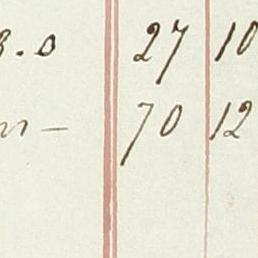 3.0 27 10
m – 70 12